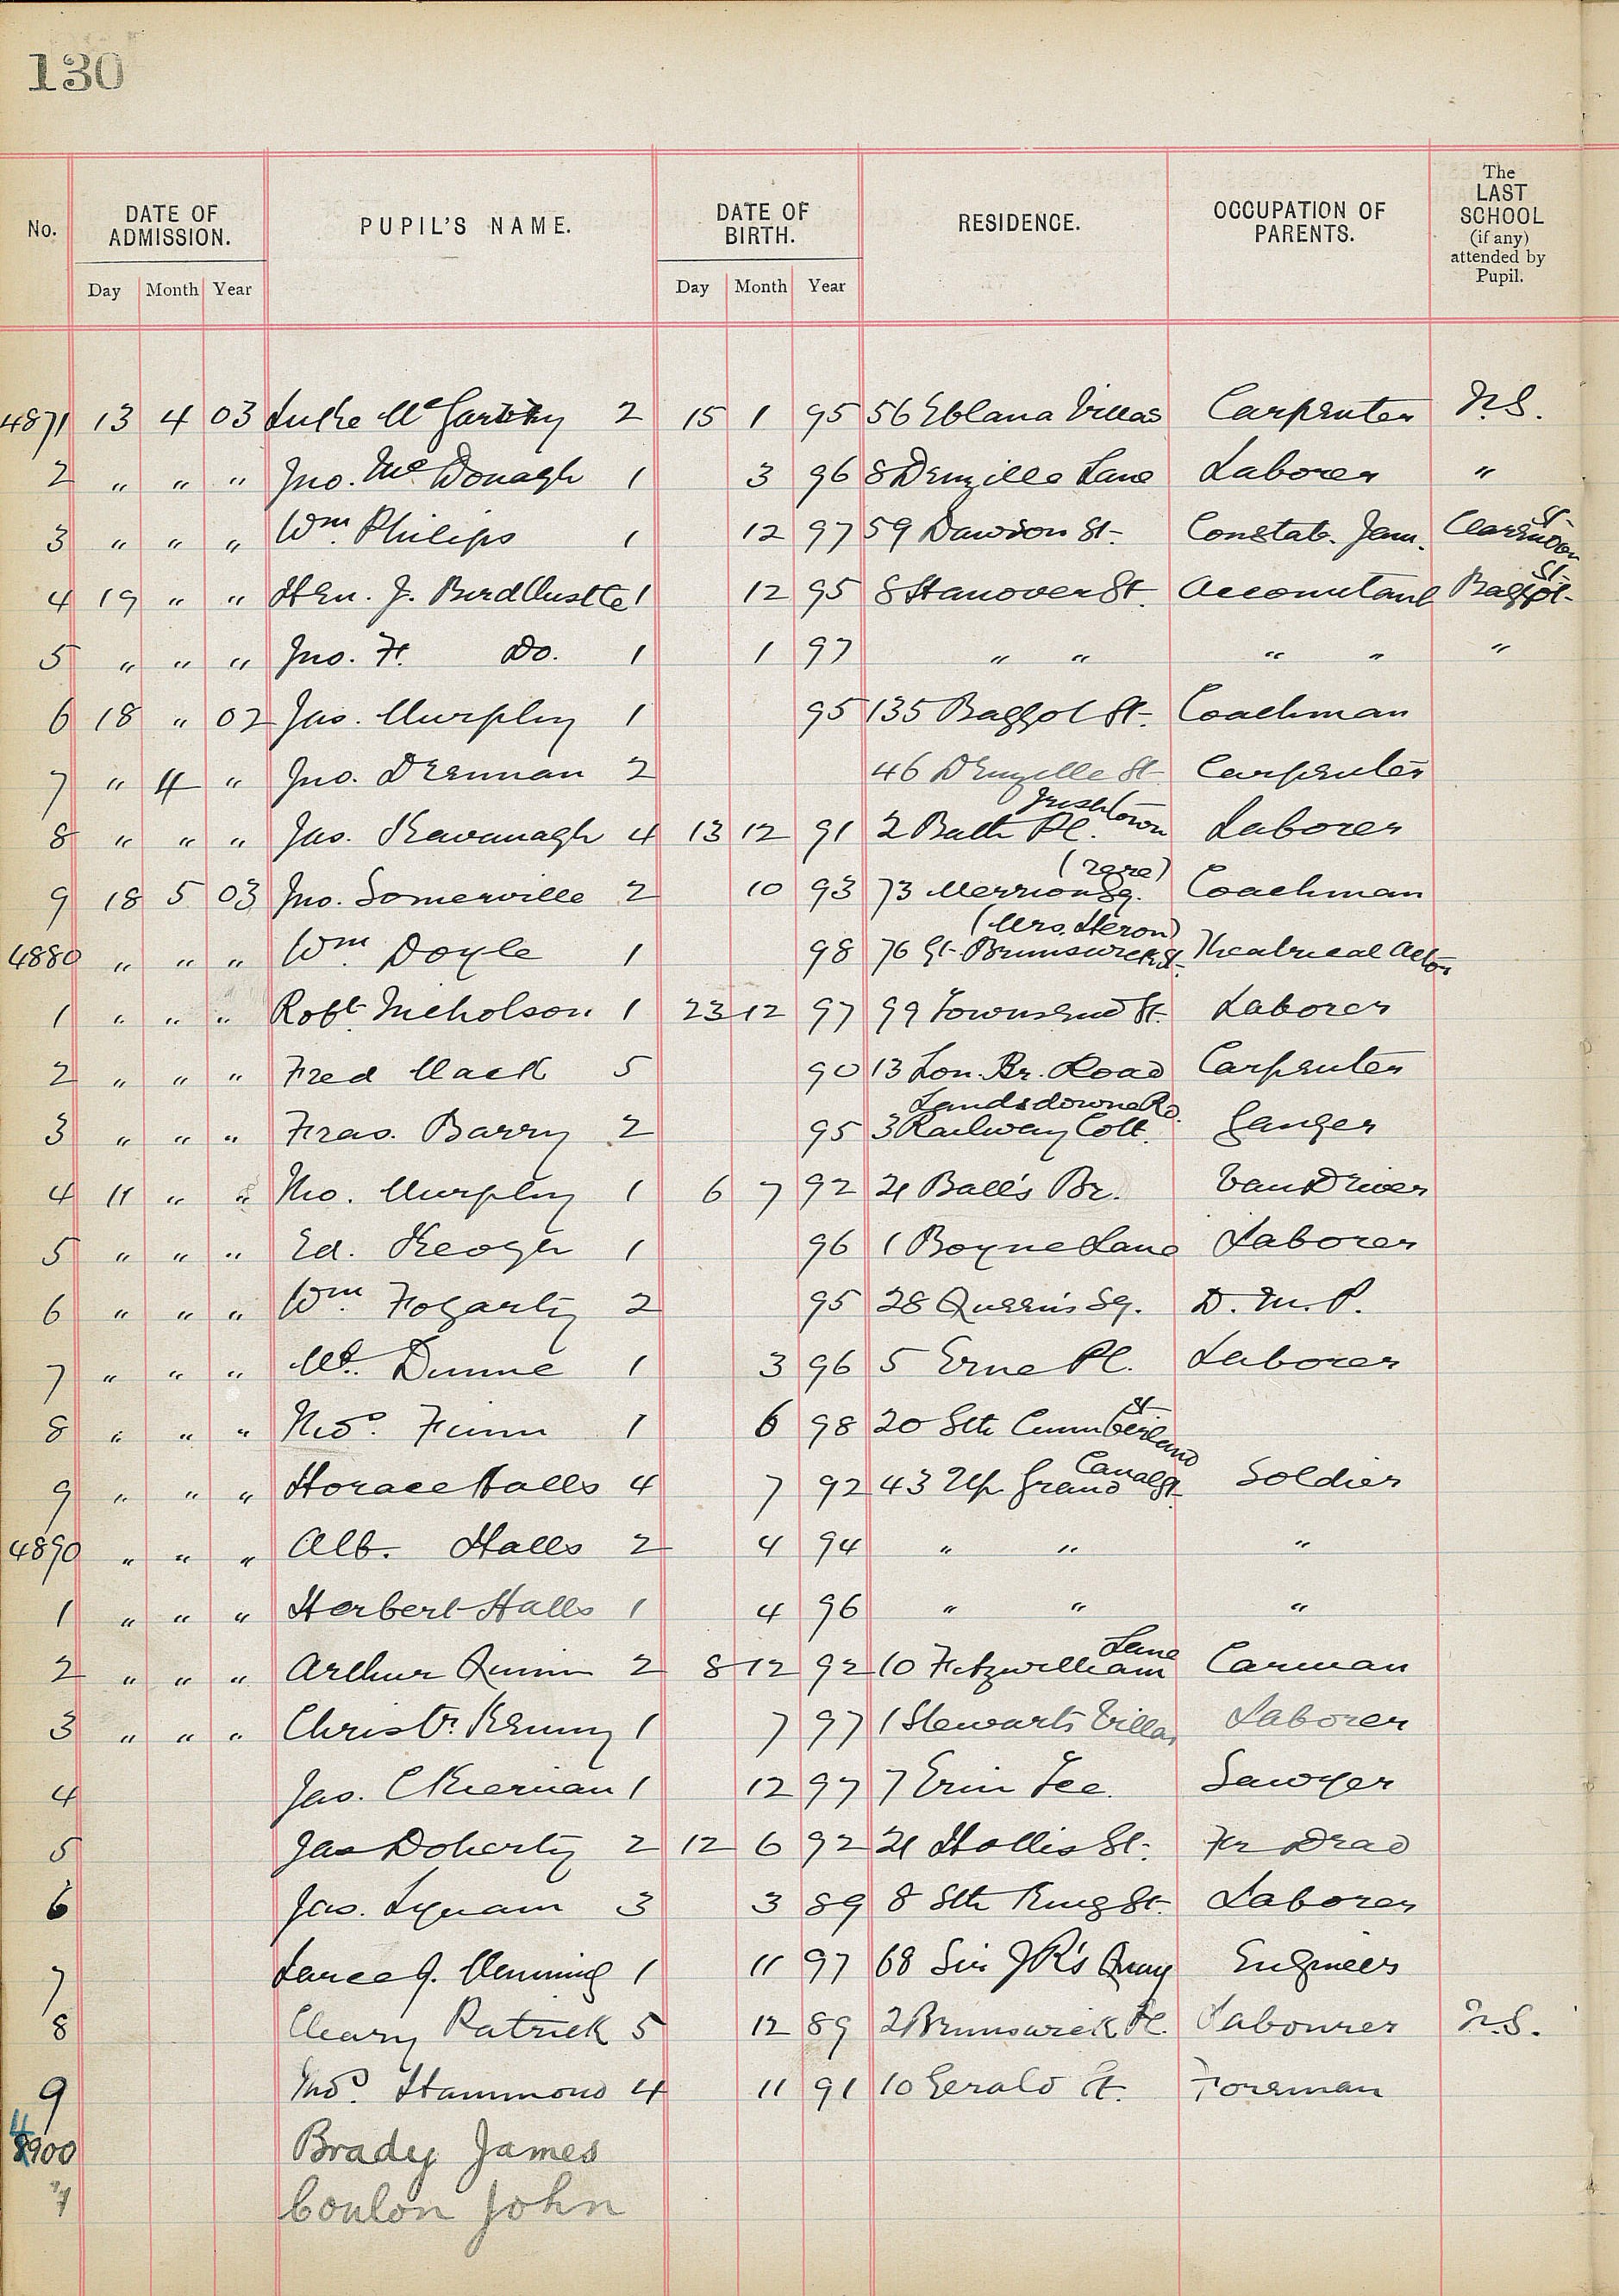 130
No. DATE OF ADMISSION. PUPIL'S NAME. DATE OF BIRTH. RESIDENCE. OCCUPATION OF PARENTS. The LAST SCHOOL (if any) attended by Pupil.
Day Month Year Day Month Year
4871 13 4 03 Luke McCarthy 2 15 1 95 56 Eblana Villas Carpenter N.S.
2 " " " Jno. McDonagh 1 3 96 8 Denzille Lane Laborer "
3 " " " Wm. Philips 1 12 97 59 Dawson St. Constab. Clarendon St.
4 19 " " Hen. J. 1 12 95 8 Hanover St. Accountant Baggot St.
5 " " " Jno. F. Do. 1 1 97 " " " " "
6 18 " 02 Jas. Murphy 1 95 135 Baggot St. Coachman
7 " 4 " Jno. Drennan 2 46 Denzille St Carpenter
8 " " " Jas. Kavanagh 4 13 12 91 2 Bath Pl. Irishtown Laborer
9 18 5 03 Jno. Somerville 2 10 93 73 Merrion Sq. (rere) Coachman
4880 " " " Wm. Doyle 1 98 76 Gt. Brunswick St. (Mrs. Heron) Theatrical Actor
1 " " " Robt. Nicholson 1 23 12 97 99 Townsend St. Laborer
2 " " " Fred Mack 5 90 13 Lon. Br. Road Carpenter
3 " " " Fras. Barry 2 95 3 Railway Cott. Landsdowne Rd. Ganger
4 11 " " Tho. Murphy 1 6 7 92 21 Ball's Br. Van Driver
5 " " " Ed. Keogh 1 96 1 Boyne Lane Laborer
6 " " " Wm. Fogarty 2 95 28 Queen's Sq. D.M.P.
7 " " " Mt. Dunne 1 3 96 5 Erne Pl. Laborer
8 " " " Thos. Finn 1 6 98 20 Sth Cumberland St
9 " " " Horace Halls 4 7 92 43 Up Grand Canal St. Soldier
4890 " " " Alb. Halls 2 4 94 " " "
1 " " " Herbert Halls 1 4 96 " " "
2 " " " Arthur Quinn 2 8 12 92 10 Fitzwilliam Lane Carman
3 " " " Christr. Kenny 1 7 97 1 Stewarts Villas Laborer
4 Jas. Kiernan 1 12 97 7 Erin Tce. Sawyer
5 Jas Doherty 2 12 6 92 21 Hollis St. Fr Dead
6 Jas. Lynam 3 3 89 8 Sth King St. Laborer
7 Lance J. 1 11 97 68 Sir J R's Quay Engineer
8 Cleary Patrick 5 12 89 2 Brunswick Pl. Labourer N.S.
9 Thos. Hammond 4 11 91 10 Gerald St. Foreman
4900 Brady James
1 Conlon John